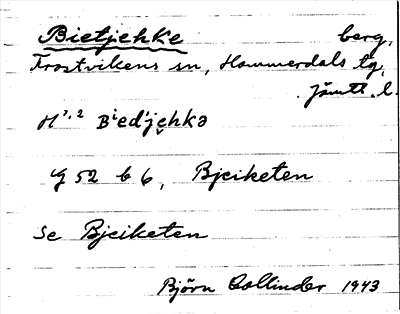 Bietjehke berg,
Frostvikens sn, Hammerdals tg,
Jämtl. l.
H³,² Bⁱedʹje̬hkə
G 52 b 6, Bjeiketen
Se Bjeiketen
Björn Collinder 1943